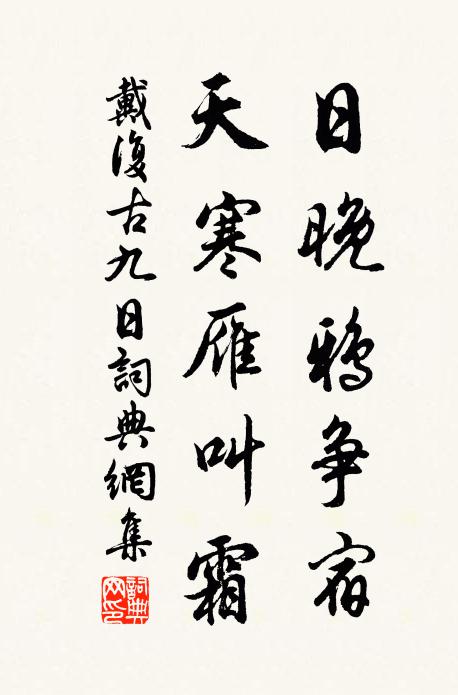 日晚鴉争宿
天寒雁叫霜
戴復古九日詞典網集
詞典網印